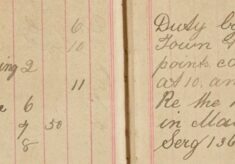 6
10
ing 2
11
6
7 50
8
Duty
Town
points
at 10. an
Re the
in Ma
Serg 136